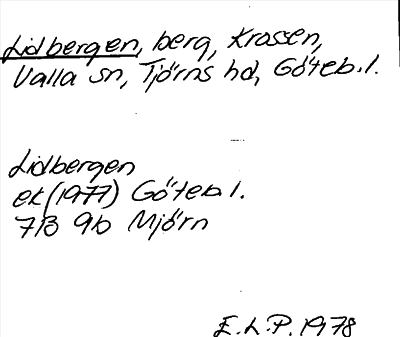 Lidbergen, berg, Krossen,
Valla sn, Tjörns hd, Göteb. l.
Lidbergen
ek (1977) Göteb l.
7B 9b Mjörn
E.L.P. 1978